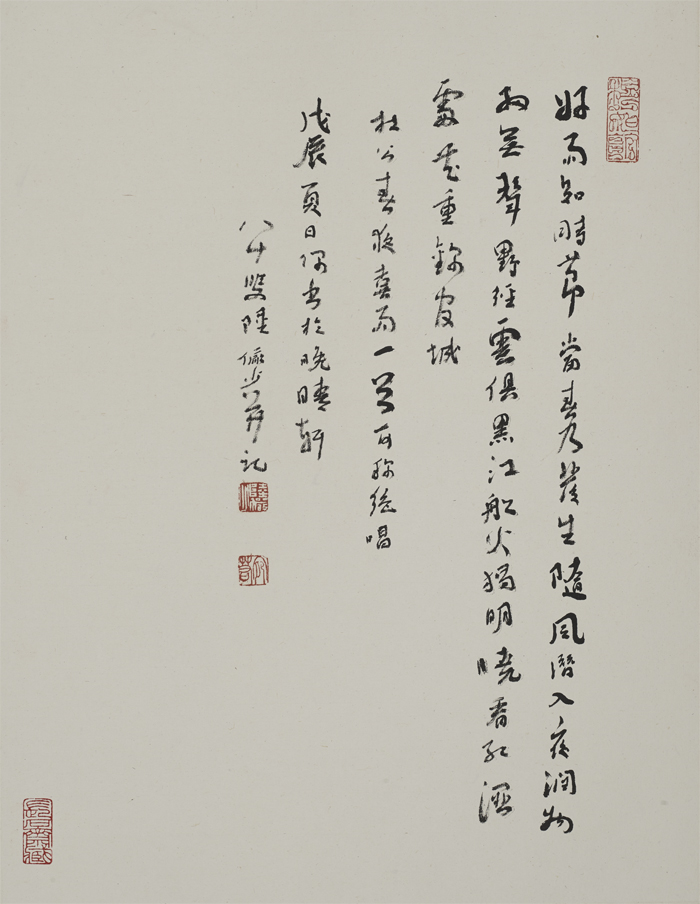 好雨知時節當春乃發生隨風潛入夜潤物
細無聲野徑雲俱黑江船火獨明曉看紅溼
處花重錦官城
杜公春夜喜雨一首可稱絕唱
戊辰夏日偶書於晚晴軒
八十叟陸儼少并記